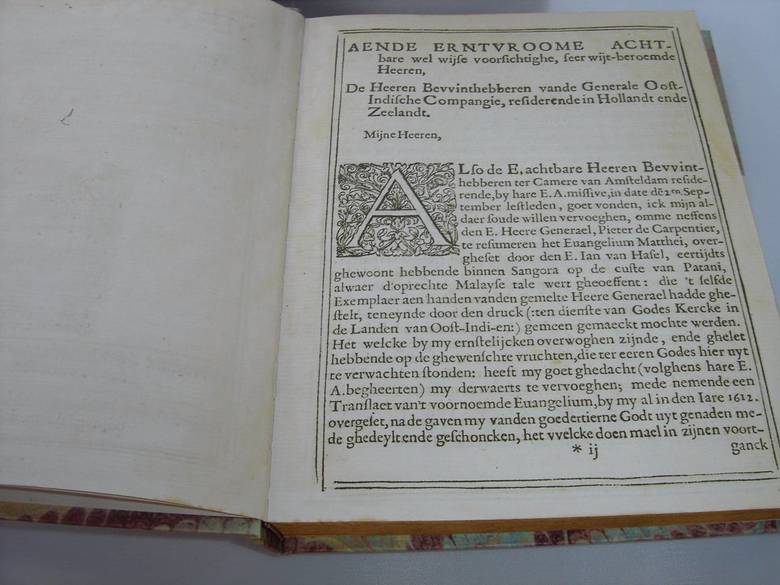 AENDE ERNTVROOME ACHT-
bare wel wijse voorsichtighe, seer wijt-beroemde
Heeren,
De Heeren Bevvinthebberen vande Generale Oost-
Indische Compangie, residerende in Hollandt ende
Zeelandt.
Mijne Heeren,
ALso de E. achtbare Heeren Bevvint-
hebberen ter Camere van Amsteldam reside-
rende, by hare E. A. missive, in date dē 2en. Sep-
tember lestleden, goet vonden, ick mijn al-
daer soude willen vervoeghen, omme neffens
den E. Heere Generael, Pieter de Carpentier,
te resumeren het Euangelium Matthei, over-
gheset door den E. Ian van Hasel, eertijdts
ghewoont hebbende binnen Sangora op de custe van Patani,
alwaer d'oprechte Malayse tale wert gheoeffent: die 't selfde
Exemplaer aen handen vanden gemelte Heere Generael hadde ghe-
stelt, teneynde door den druck (:ten dienste van Godes Kercke in
de Landen van Oost-Indi-en:) gemeen gemaeckt mochte werden.
Het welcke by my ernstelijcken overwoghen zijnde, ende ghelet
hebbende op de ghewenschte vruchten, die ter eeren Godes hier uyt
te verwachten stonden: heeft my goet ghedacht (volghens hare E.
A. begheerten) my derwaerts te vervoeghen; mede nemende een
Translaet van't voornoemde Euangelium, by my al in den Iare 1612.
overgeset, na de gaven my vanden goedertierne Godt uyt genaden me-
de ghedeylt ende geschoncken, het vvelcke doen mael in zijnen voort-
* ij ganck